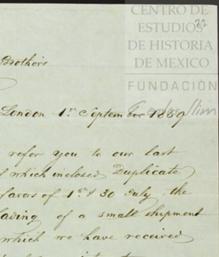 CENTRO DE
ESTUDIOS
DE HISTORIA
DE MEXICO
FUNDACIÓN
Brothers
London 1st September 1889
refer you to our last
which inclosed Duplicate
favors of 1st & 30 July, the
of a small shipment
which we have received